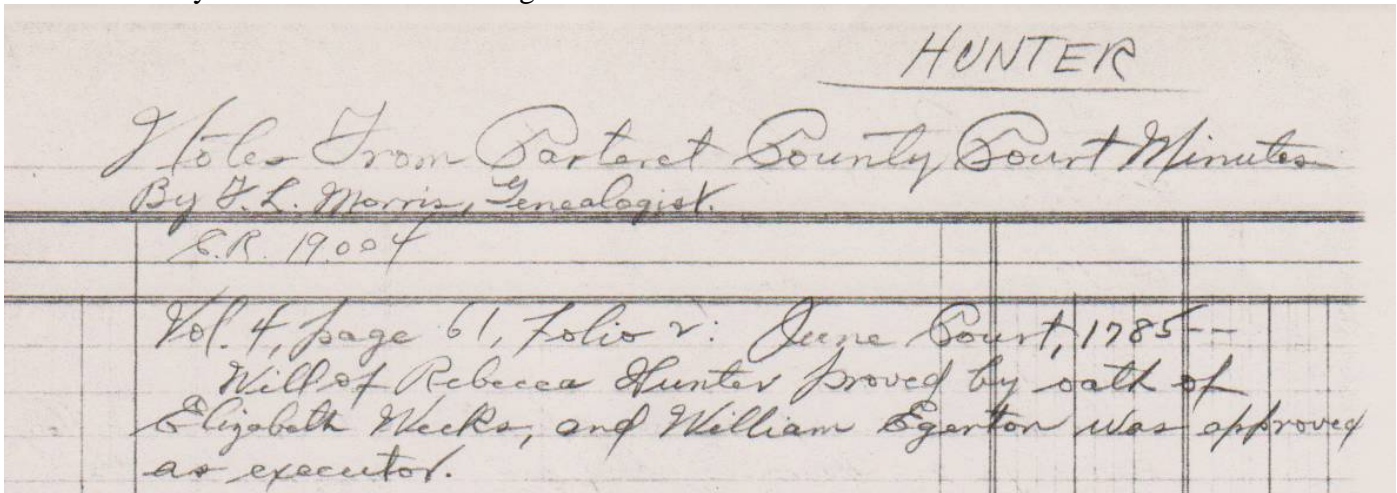 HUNTER
Notes From Carteret County Court Minutes
By F. L. Morris, Genealogist.
C.R. 19.004
Vol. 4, page 61, Folio 2: June Court, 1785--
Will of Rebecca Hunter proved by oath of
Elizabeth Weeks, and William Egerton was approved
as executor.